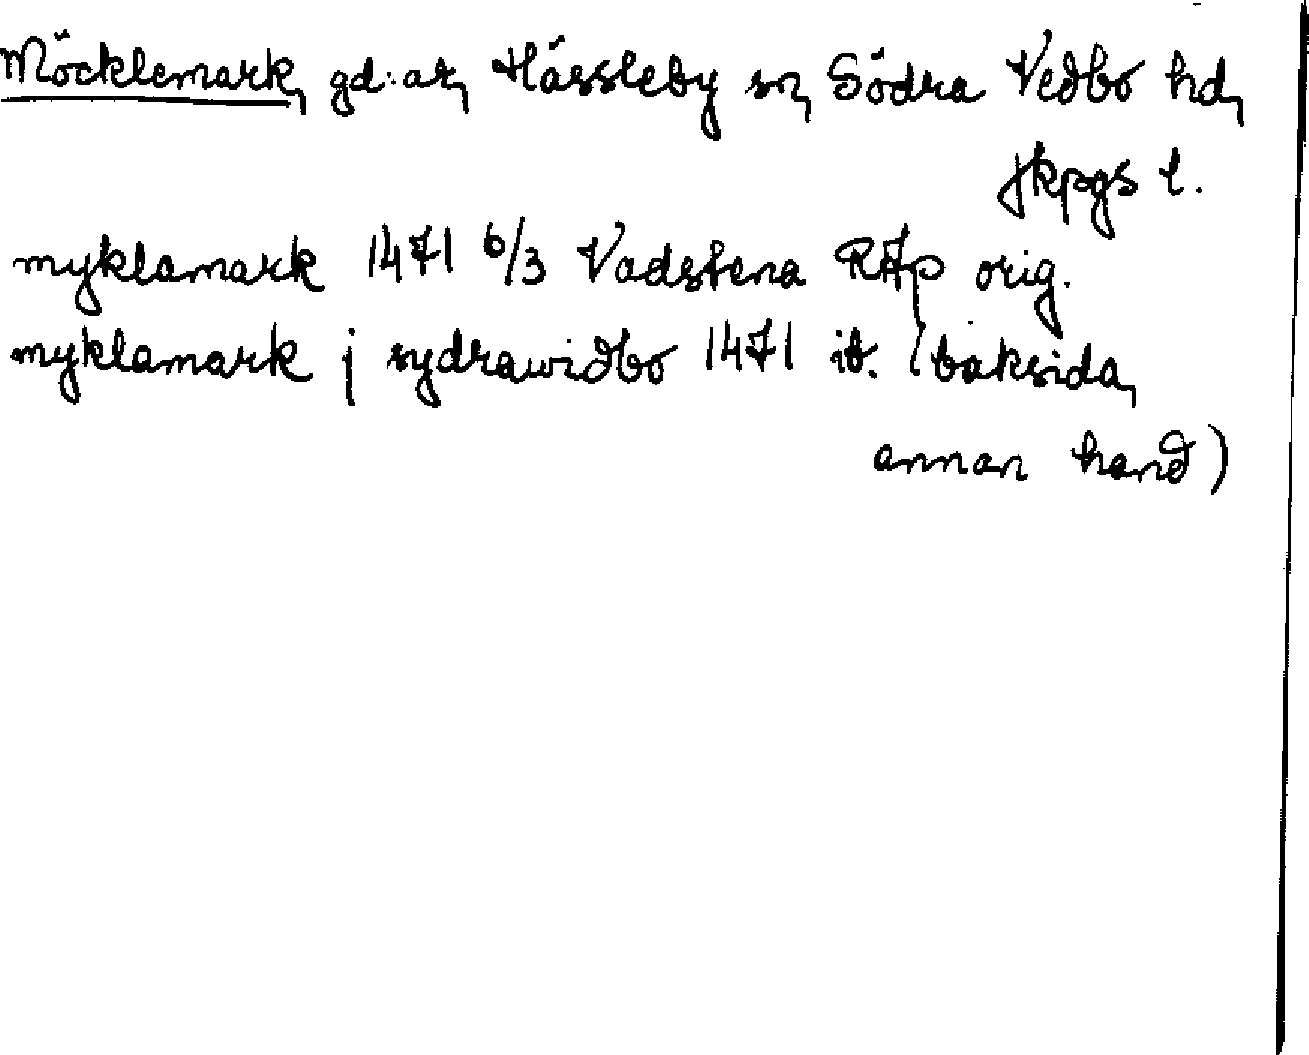 Möcklemark, gd:ar, Hässleby sn, Södra Vedbo hd,
Jkpgs l.
myklamark 1471 6/3 Vadstena RAp orig.
myklamark j sydrawidbo 1471 ib. (baksida,
annan hand)